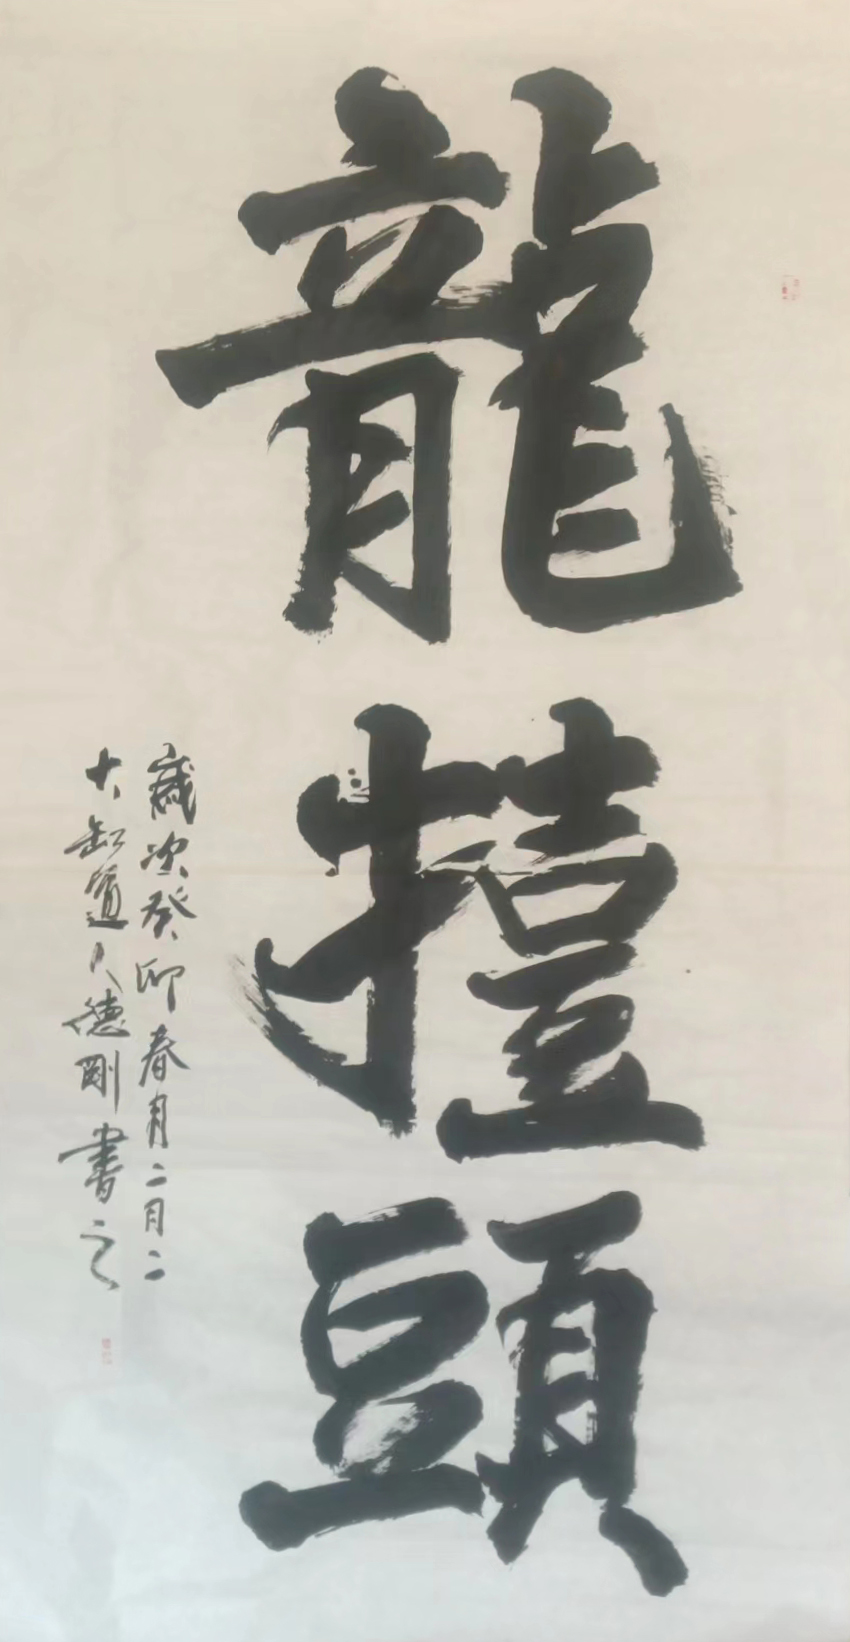 龍擡頭
歲次癸卯春月二月二
大缸道人德剛書之